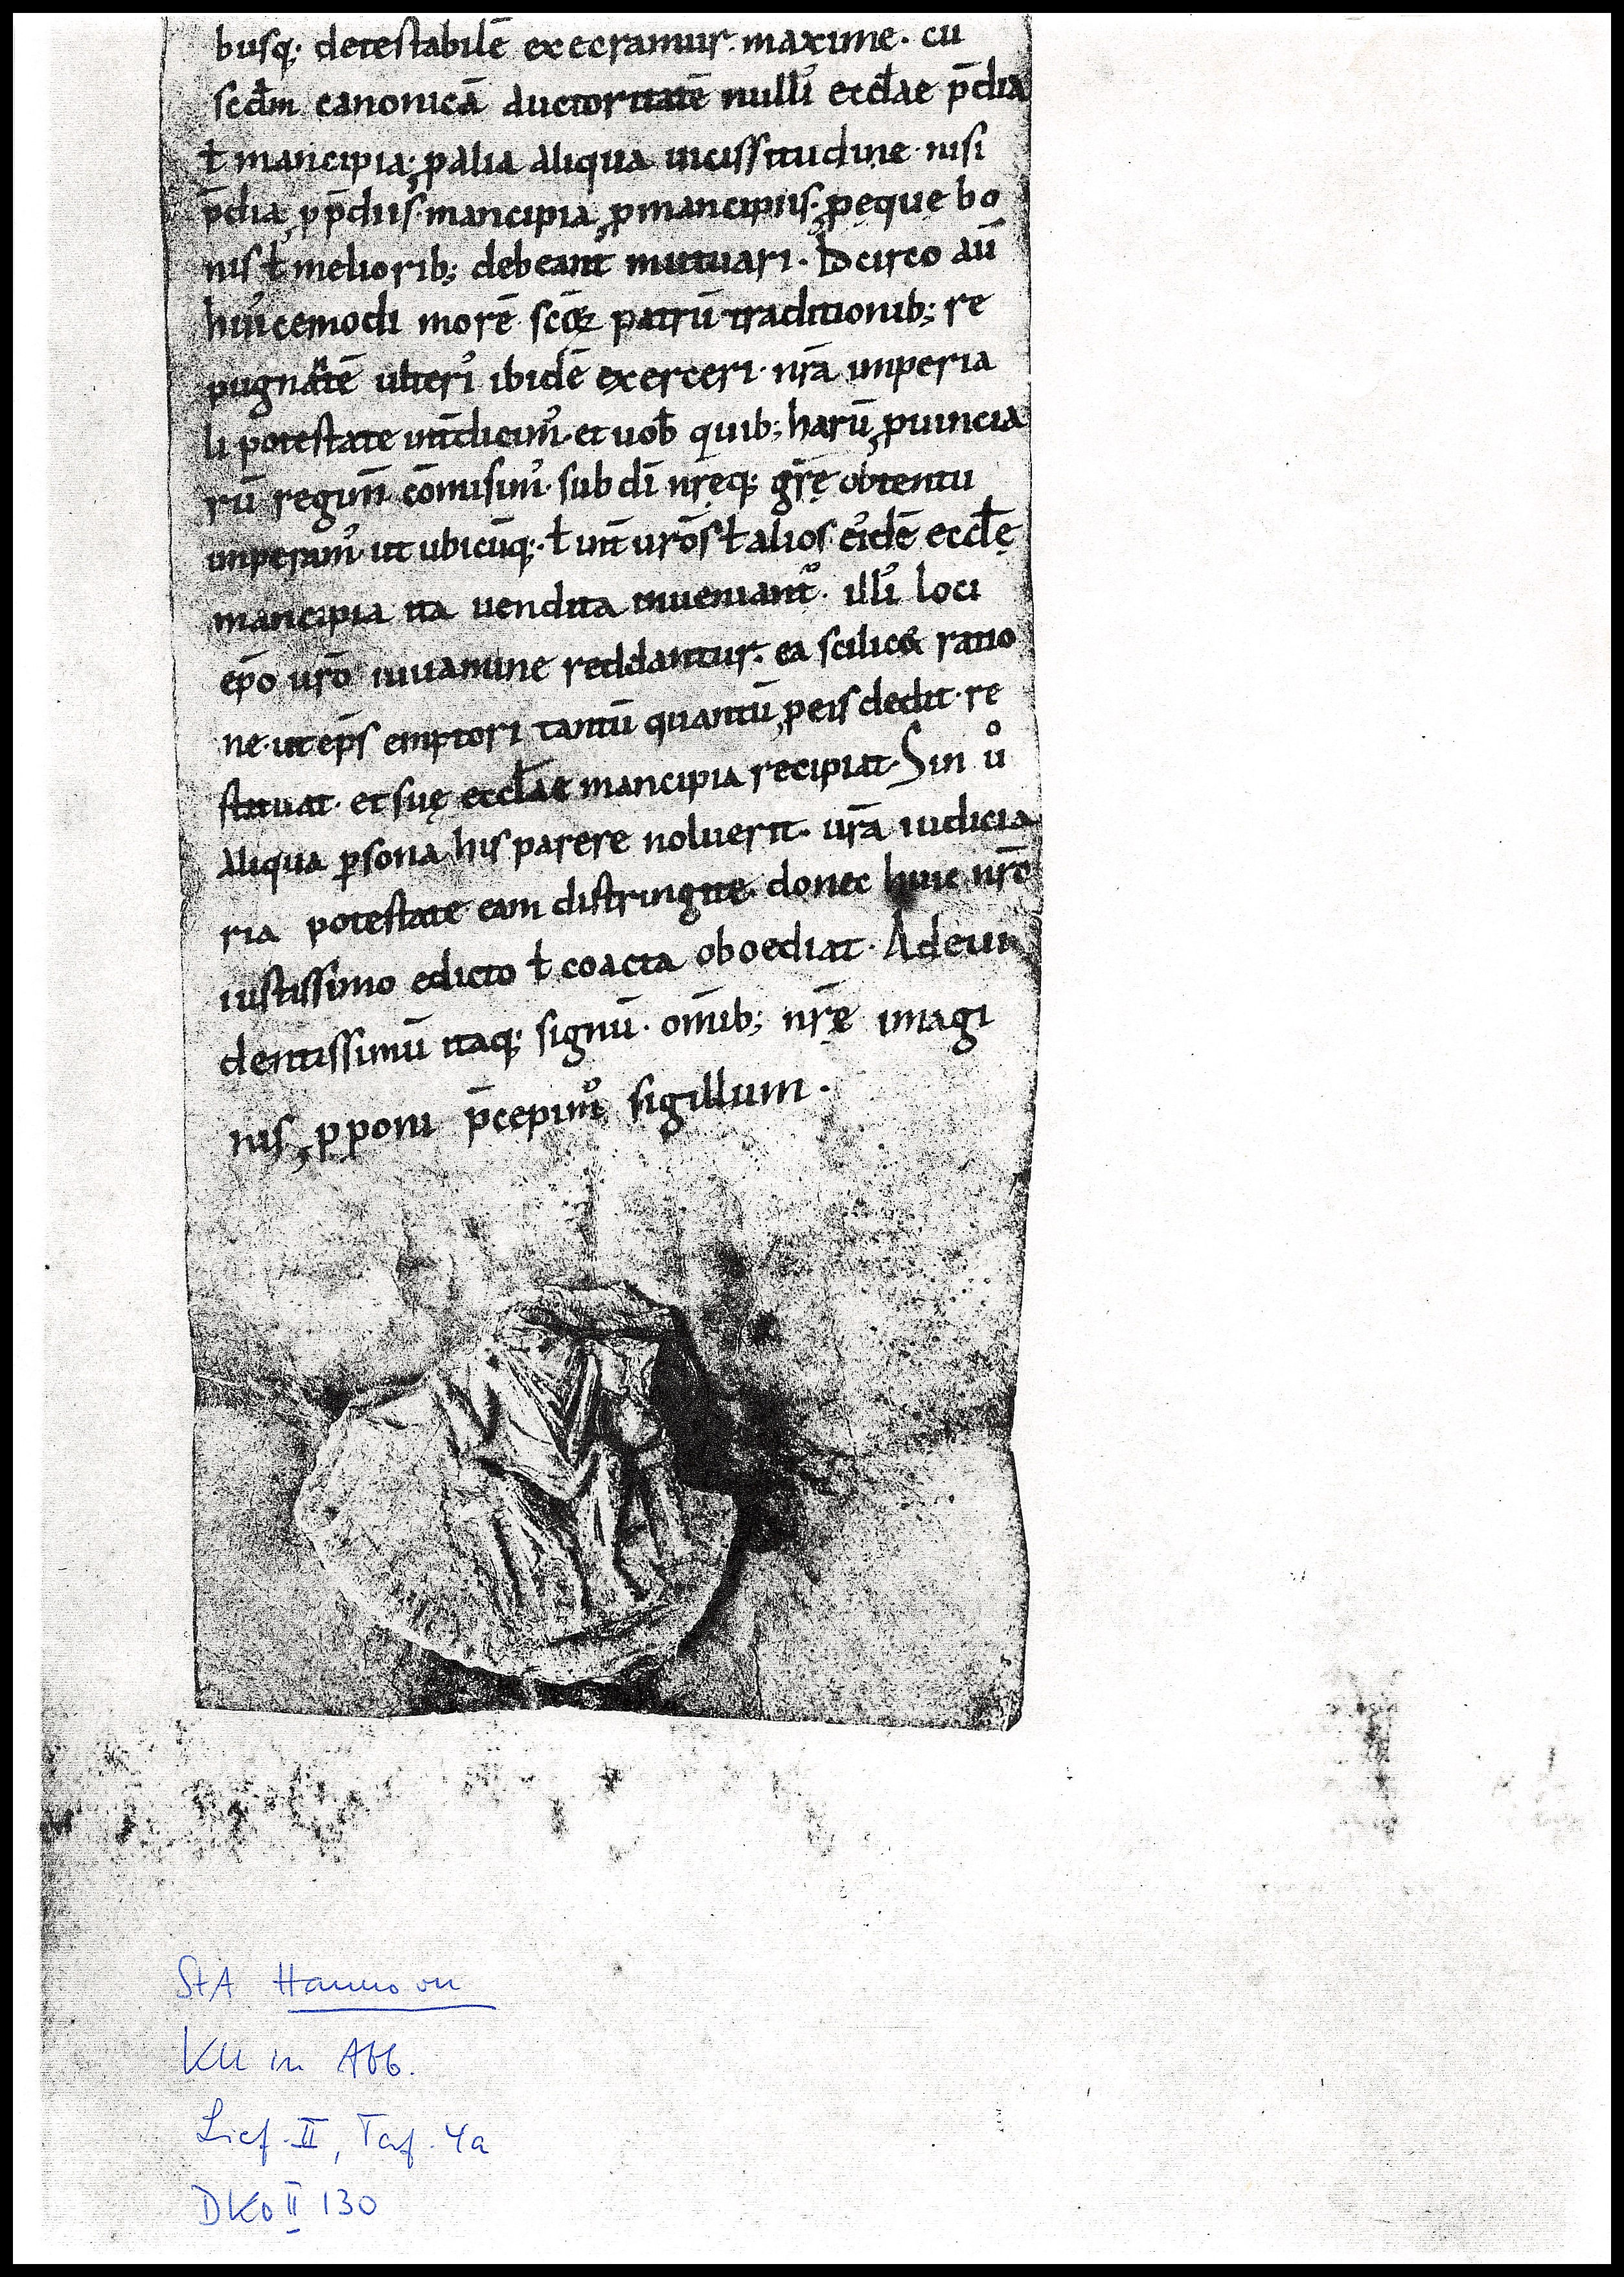 busq; detestabilē execramur. maxime. cū
scdm canonicā auctoritatē nulli᾽ eccl̄ae p̄dia
ł mancipia; p̱ alia aliqua uicissitudine nisi
p̄dia, ꝓ p̄diis mancipia, ꝓ mancipiis ꝓ ęque bo
nis ł meliorib; debeant mutuari. Idcirco aū
hui᾽cemodi morē scōꝝ patrū traditionib; re
pugnātē ulteri᾽ ibidē exerceri nr̄a imperia
li potestate int̄dicim᾽. et uob̄ quib; harū ꝓuincia
rū regim̄ cōmisim᾽. sub dī nr̄ęq; gr̄ę obtentu
imperam᾽ ut ubicūq; ł int̄ ur̄os ł alios ei᾽dē eccl̄ę
mancipia ita uendita inueniant᾽. illi᾽ loci
ep̄o ur̄o iuuamine reddantur. ea scilic& ratio
ne. ut ep̄s emptori tantū quantū ꝓ eis dedit. re
stituat. et suę eccl̄ae mancipia recipiat. Sin ůͦ
aliqua ꝑsona his parere noluerit. ur̄a iudicia
ria potestate eam distringite. donec huic nr̄o
iustissimo edicto ł coacta oboediat. Ad eui
dentissimū itaq; signū. om̄ib; nr̄ę imagi
nis ꝓponi p̄cepim᾽ sigillum.
StA Hannover
KU in Abb.
Lief. II, Taf. 4a
DKo II 130